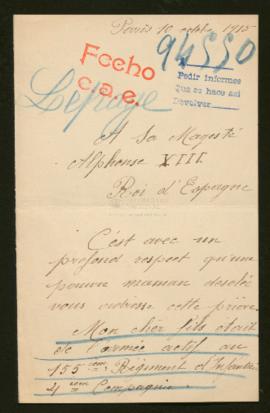 Paris 10 octobre 1915
94550
Fecho
c.a.e.
Pedir informes
Que se hace así
Devolver
Lepage
A Sa Magesté
Alphonse XIII
Roi d'Espagne
C'est avec un
profond respect qu'une
pauvre maman desolée
vous adresse cette prière.
Mon cher fils était
de l'armée actif au
155 eme Régiment d'Infanterie
4 eme Compagnie.